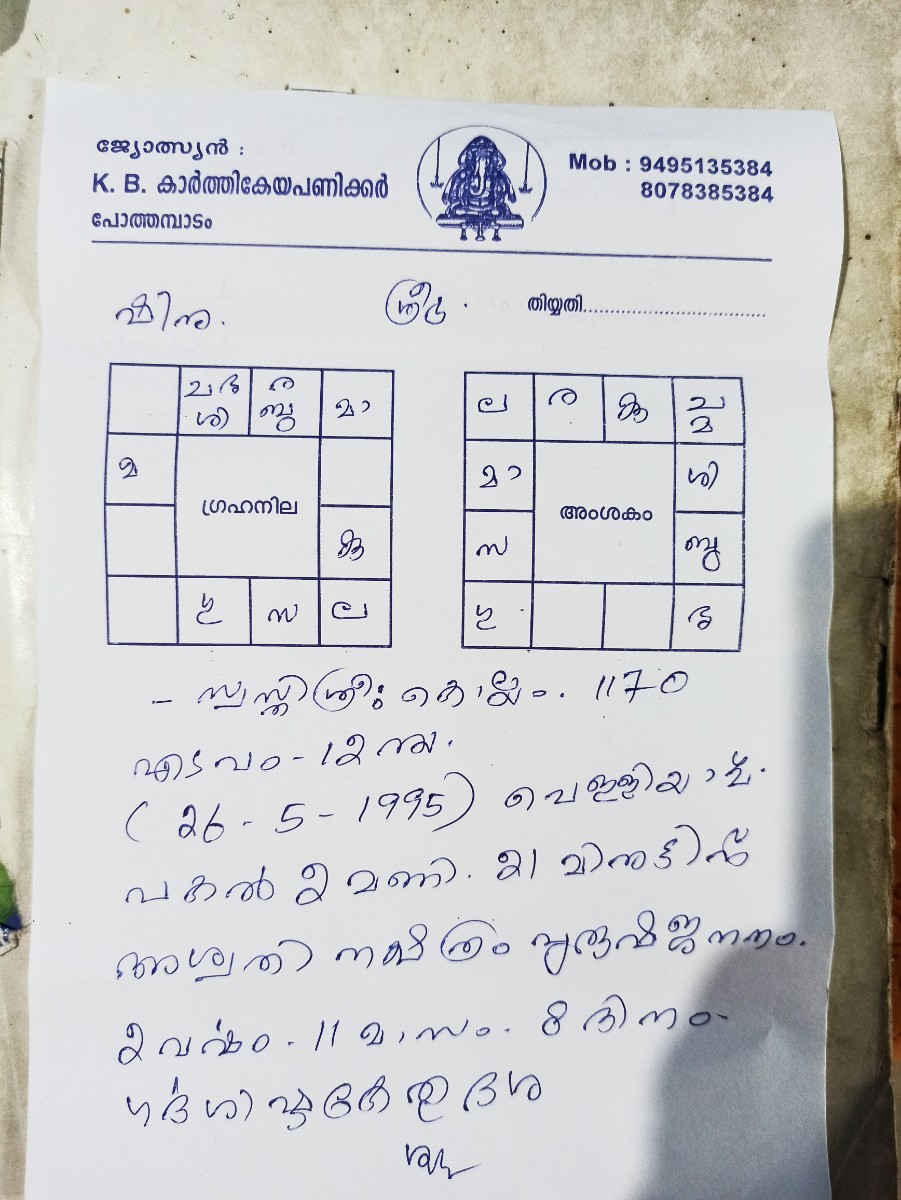 ജ്യോത്സ്യൻ :
K. B. കാർത്തികേയപണിക്കർ
പോത്തമ്പാടം
Mob : 9495135384
8078385384
ഷിനു.
ശ്രീഃ
തിയ്യതി
ച ഭ ര മാ
ശി ബു
മ
ഗ്രഹനില
കു
ഗു സ ല
ല ര കു ച
മ
മാ ശി
അംശകം
സ ബു
ഗു ഭ
- സ്വസ്തിശ്രീഃ കൊല്ലം. 1170
എടവം - 12 നു.
( 26 - 5 - 1995 ) വെള്ളിയാഴ്ച.
പകൽ 2 മണി. 21 മിനുട്ടിന്
അശ്വതി നക്ഷത്രം പുരുഷജനനം.
2 വർഷം. 11 മാസം. 8 ദിനം
ഗർഭശിഷ്ട കേതു ദശ